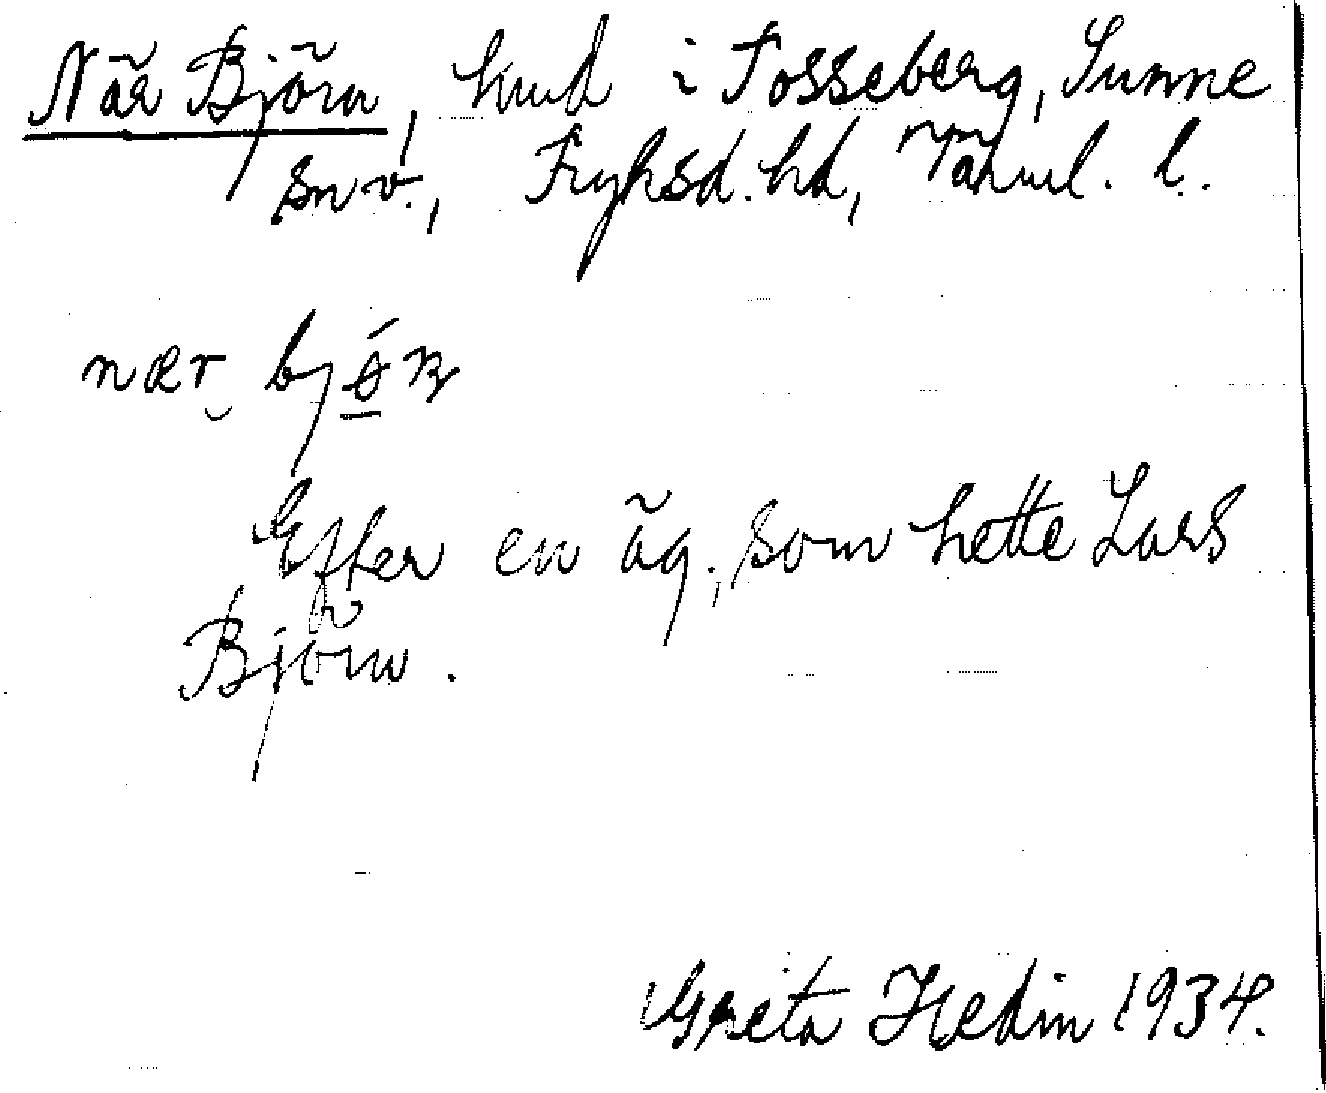 När Björn, hmd i Fosseberg, Sunne
sn v., Fryksd. hd, Värml. l.
nær bjǿn
Efter en äg., som hette Lars
Björn.
Greta Hedin 1934.